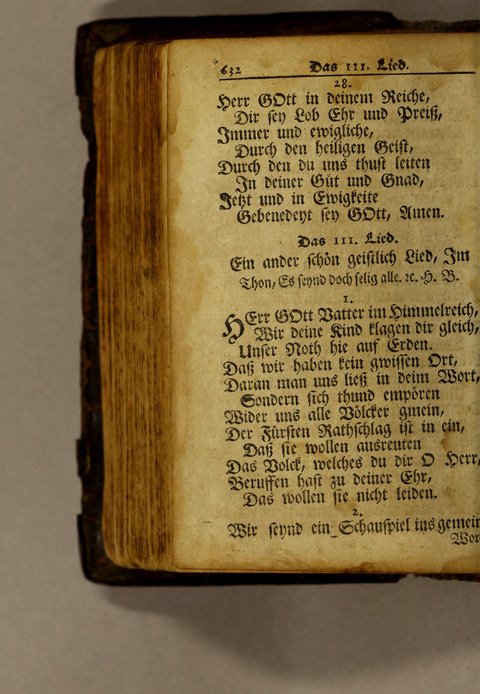 632 Das III. Lied.
28.
Herr GOtt in deinem Reiche,
Dir sey Lob Ehr und Preiß,
Immer und ewigliche,
Durch den heiligen Geist,
Durch den du uns thust leiten
In deiner Güt und Gnad,
Jetzt und in Ewigkeite
Gebenedeyt sey GOtt, Amen.
Das III. Lied.
Ein ander schön geistlich Lied, Im
Thon, Es seynd doch selig alle. ꝛc. H. B.
1.
HErr GOtt Vatter im Himmelreich,
Wir deine Kind klagen dir gleich,
Unser Noth hie auf Erden.
Daß wir haben kein gwissen Ort,
Daran man uns ließ in deim Wort,
Sondern sich thund empören
Wider uns alle Völcker gmein,
Der Fürsten Rathschlag ist in ein,
Daß sie wollen ausreuten
Das Volck, welches du dir O Herr,
Beruffen hast zu deiner Ehr,
Das wollen sie nicht leiden.
2.
Wir seynd ein Schauspiel ins gemein
Wor